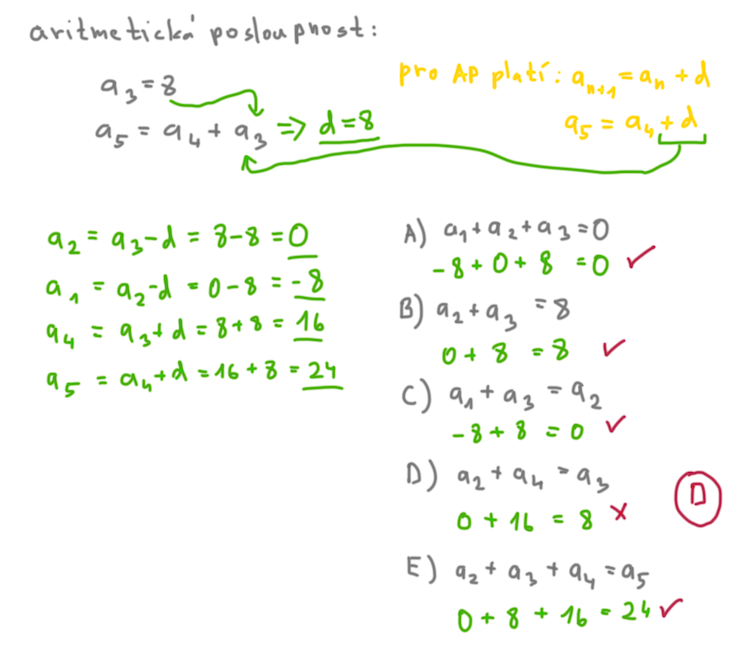 aritmetická posloupnost:
a₃ = 8
a₅ = a₄ + a₃ => d = 8
pro AP platí: aₙ₊₁ = aₙ + d
a₅ = a₄ + d
a₂ = a₃ - d = 8 - 8 = 0
a₁ = a₂ - d = 0 - 8 = -8
a₄ = a₃ + d = 8 + 8 = 16
a₅ = a₄ + d = 16 + 8 = 24
A) a₁ + a₂ + a₃ = 0
-8 + 0 + 8 = 0 ✓
B) a₂ + a₃ = 8
0 + 8 = 8 ✓
C) a₁ + a₃ = a₂
-8 + 8 = 0 ✓
D) a₂ + a₄ = a₃
0 + 16 = 8 ✗
D
E) a₂ + a₃ + a₄ = a₅
0 + 8 + 16 = 24 ✓